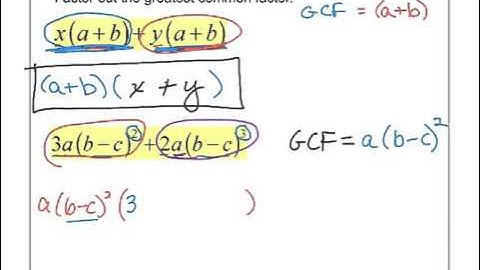 Factor out the greatest common factor.
GCF = (a+b)
x(a+b)+y(a+b)
(a+b)(x+y)
3a(b−c)²+2a(b−c)³
GCF = a(b-c)²
a(b-c)²(3 )